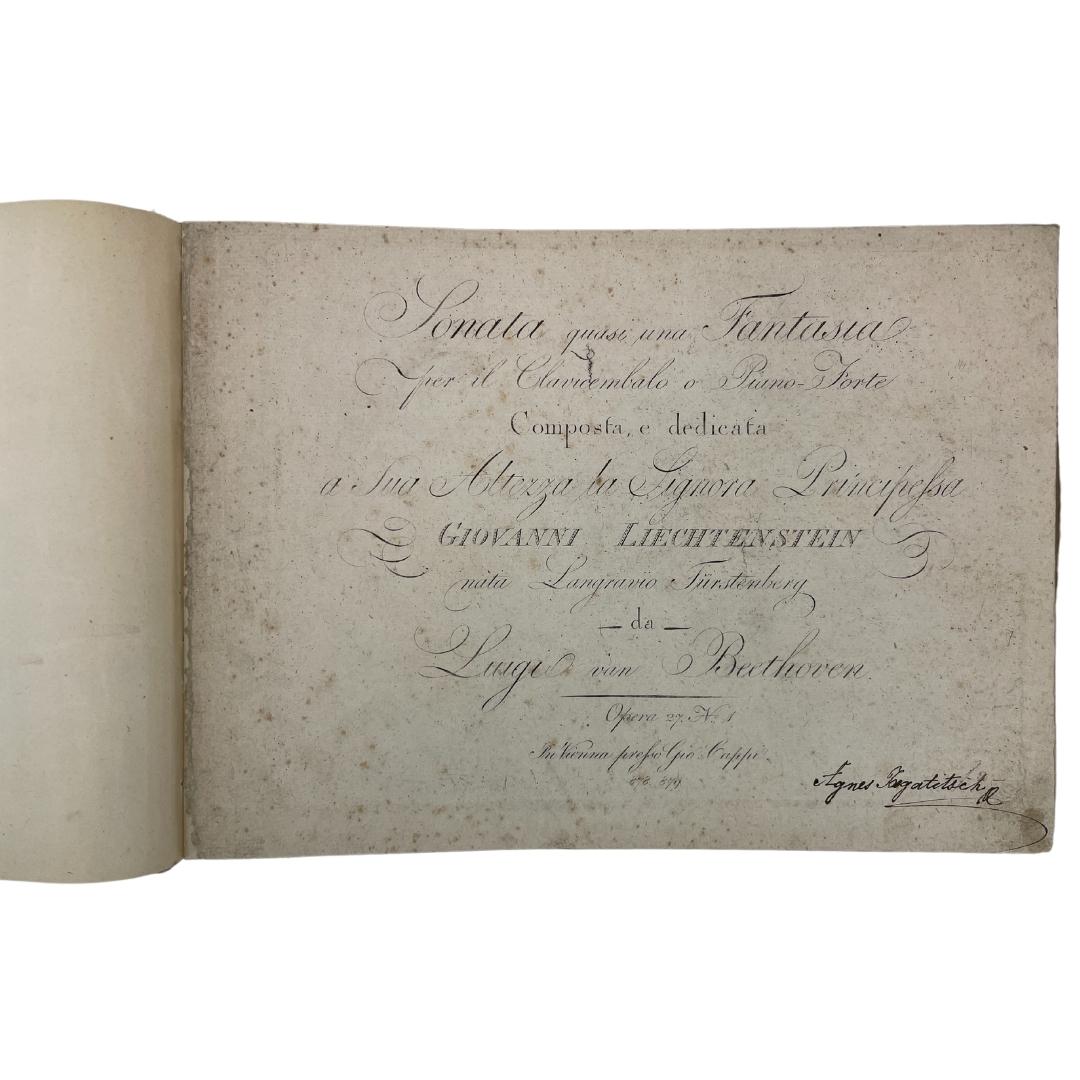 Sonata quasi una Fantasia
per il Clavicembalo o Piano-Forte
Composta, e dedicata
a Sua Altezza la Signora Principeſsa
GIOVANNI LIECHTENSTEIN
nata Langravio Fürstenberg
— da —
Luigi van Beethoven.
Opera 27. No. 1
In Vienna preſso Gio. Cappi
Agnes